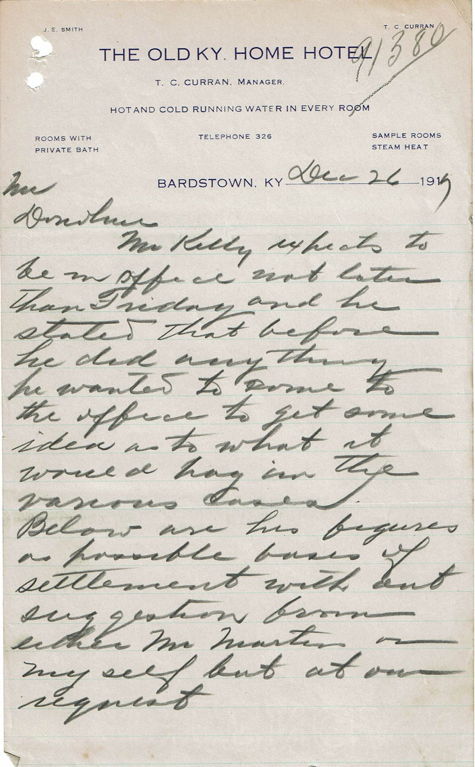 J. E. SMITH
T. C. CURRAN
THE OLD KY. HOME HOTEL
91380
T. C. CURRAN, MANAGER.
HOT AND COLD RUNNING WATER IN EVERY ROOM
ROOMS WITH
PRIVATE BATH
TELEPHONE 326
SAMPLE ROOMS
STEAM HEAT
BARDSTOWN, KY Dec 26 191
Mr
Donohue
Mr Kelly expects to
be in office not later
than Friday and he
stated that before
he did anything
he wanted to come to
the office to get some
idea as to what it
would pay in the
various cases.
Below are his figures
as possible bases of
settlement with out
suggestion from
either Mr Martin or
myself but at our
request